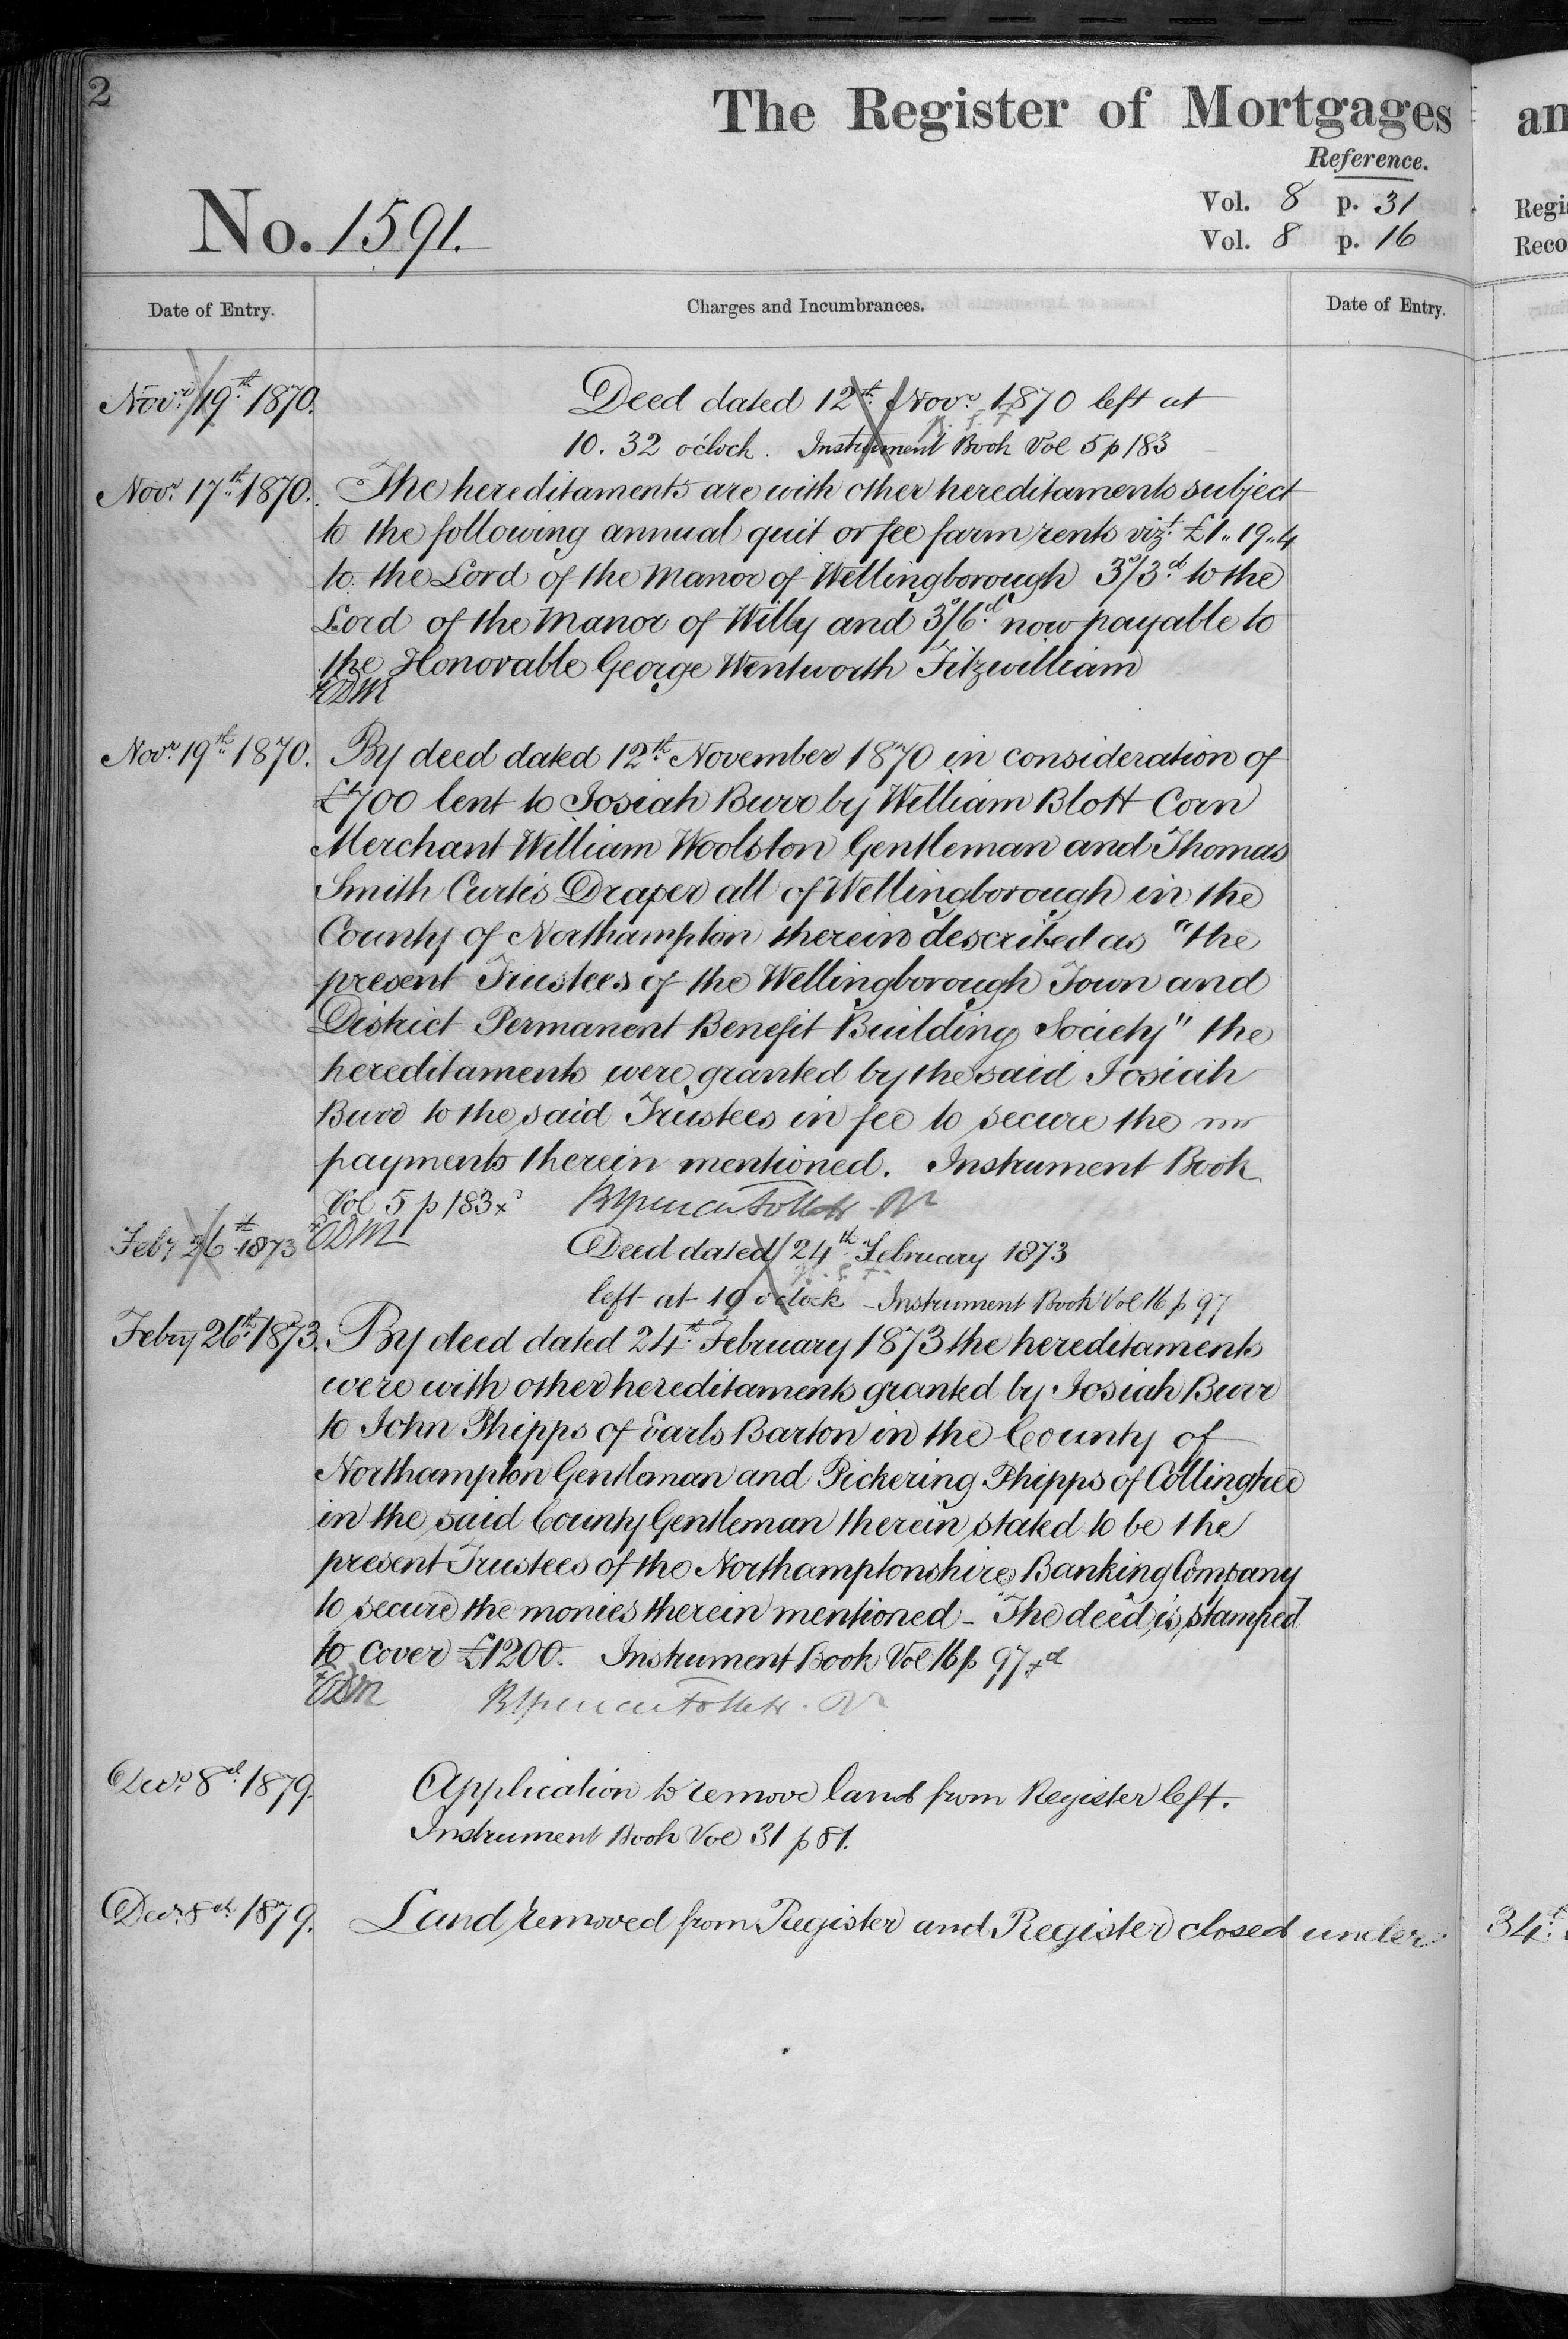 2
The Register of Mortgages
Reference.
No. 1591.
Vol. 8 p. 31
Vol. 8 p. 16
Date of Entry.
Charges and Incumbrances.
Date of Entry.
Novr. 19th 1870.
Deed dated 12th Novr. 1870 left at
10. 32 o'clock. Instrument Book Vol 5 p 183
Novr. 17th 1870.
The hereditaments are with other hereditaments subject
to the following annual quit or fee farm rents vizt. £1..19..4
to the Lord of the Manor of Wellingborough 3s/3d to the
Lord of the Manor of Willy and 3s/6d now payable to
the Honorable George Wentworth Fitzwilliam
Novr. 19th 1870.
By deed dated 12th November 1870 in consideration of
£700 lent to Josiah Burr by William Blott Corn
Merchant William Woolston Gentleman and Thomas
Smith Curtis Draper all of Wellingborough in the
County of Northampton therein described as "the
present Trustees of the Wellingborough Town and
District Permanent Benefit Building Society" the
hereditaments were granted by the said Josiah
Burr to the said Trustees in fee to secure the
payments therein mentioned. Instrument Book
Vol 5 p 183
Feby 26th 1873
Deed dated 24th February 1873
left at 10 o'clock - Instrument Book Vol 16 p 97
Febry 26th 1873.
By deed dated 24th February 1873 the hereditaments
were with other hereditaments granted by Josiah Burr
to John Phipps of Earls Barton in the County of
Northampton Gentleman and Pickering Phipps of Collingtree
in the said County Gentleman therein stated to be the
present Trustees of the Northamptonshire Banking Company
to secure the monies therein mentioned - The deed is stamped
to cover £1200. Instrument Book Vol 16 p 97
Decr. 8th 1879.
Application to remove land from Register left.
Instrument Book Vol 31 p 81.
Decr. 8th 1879.
Land removed from Register and Register closed under 34